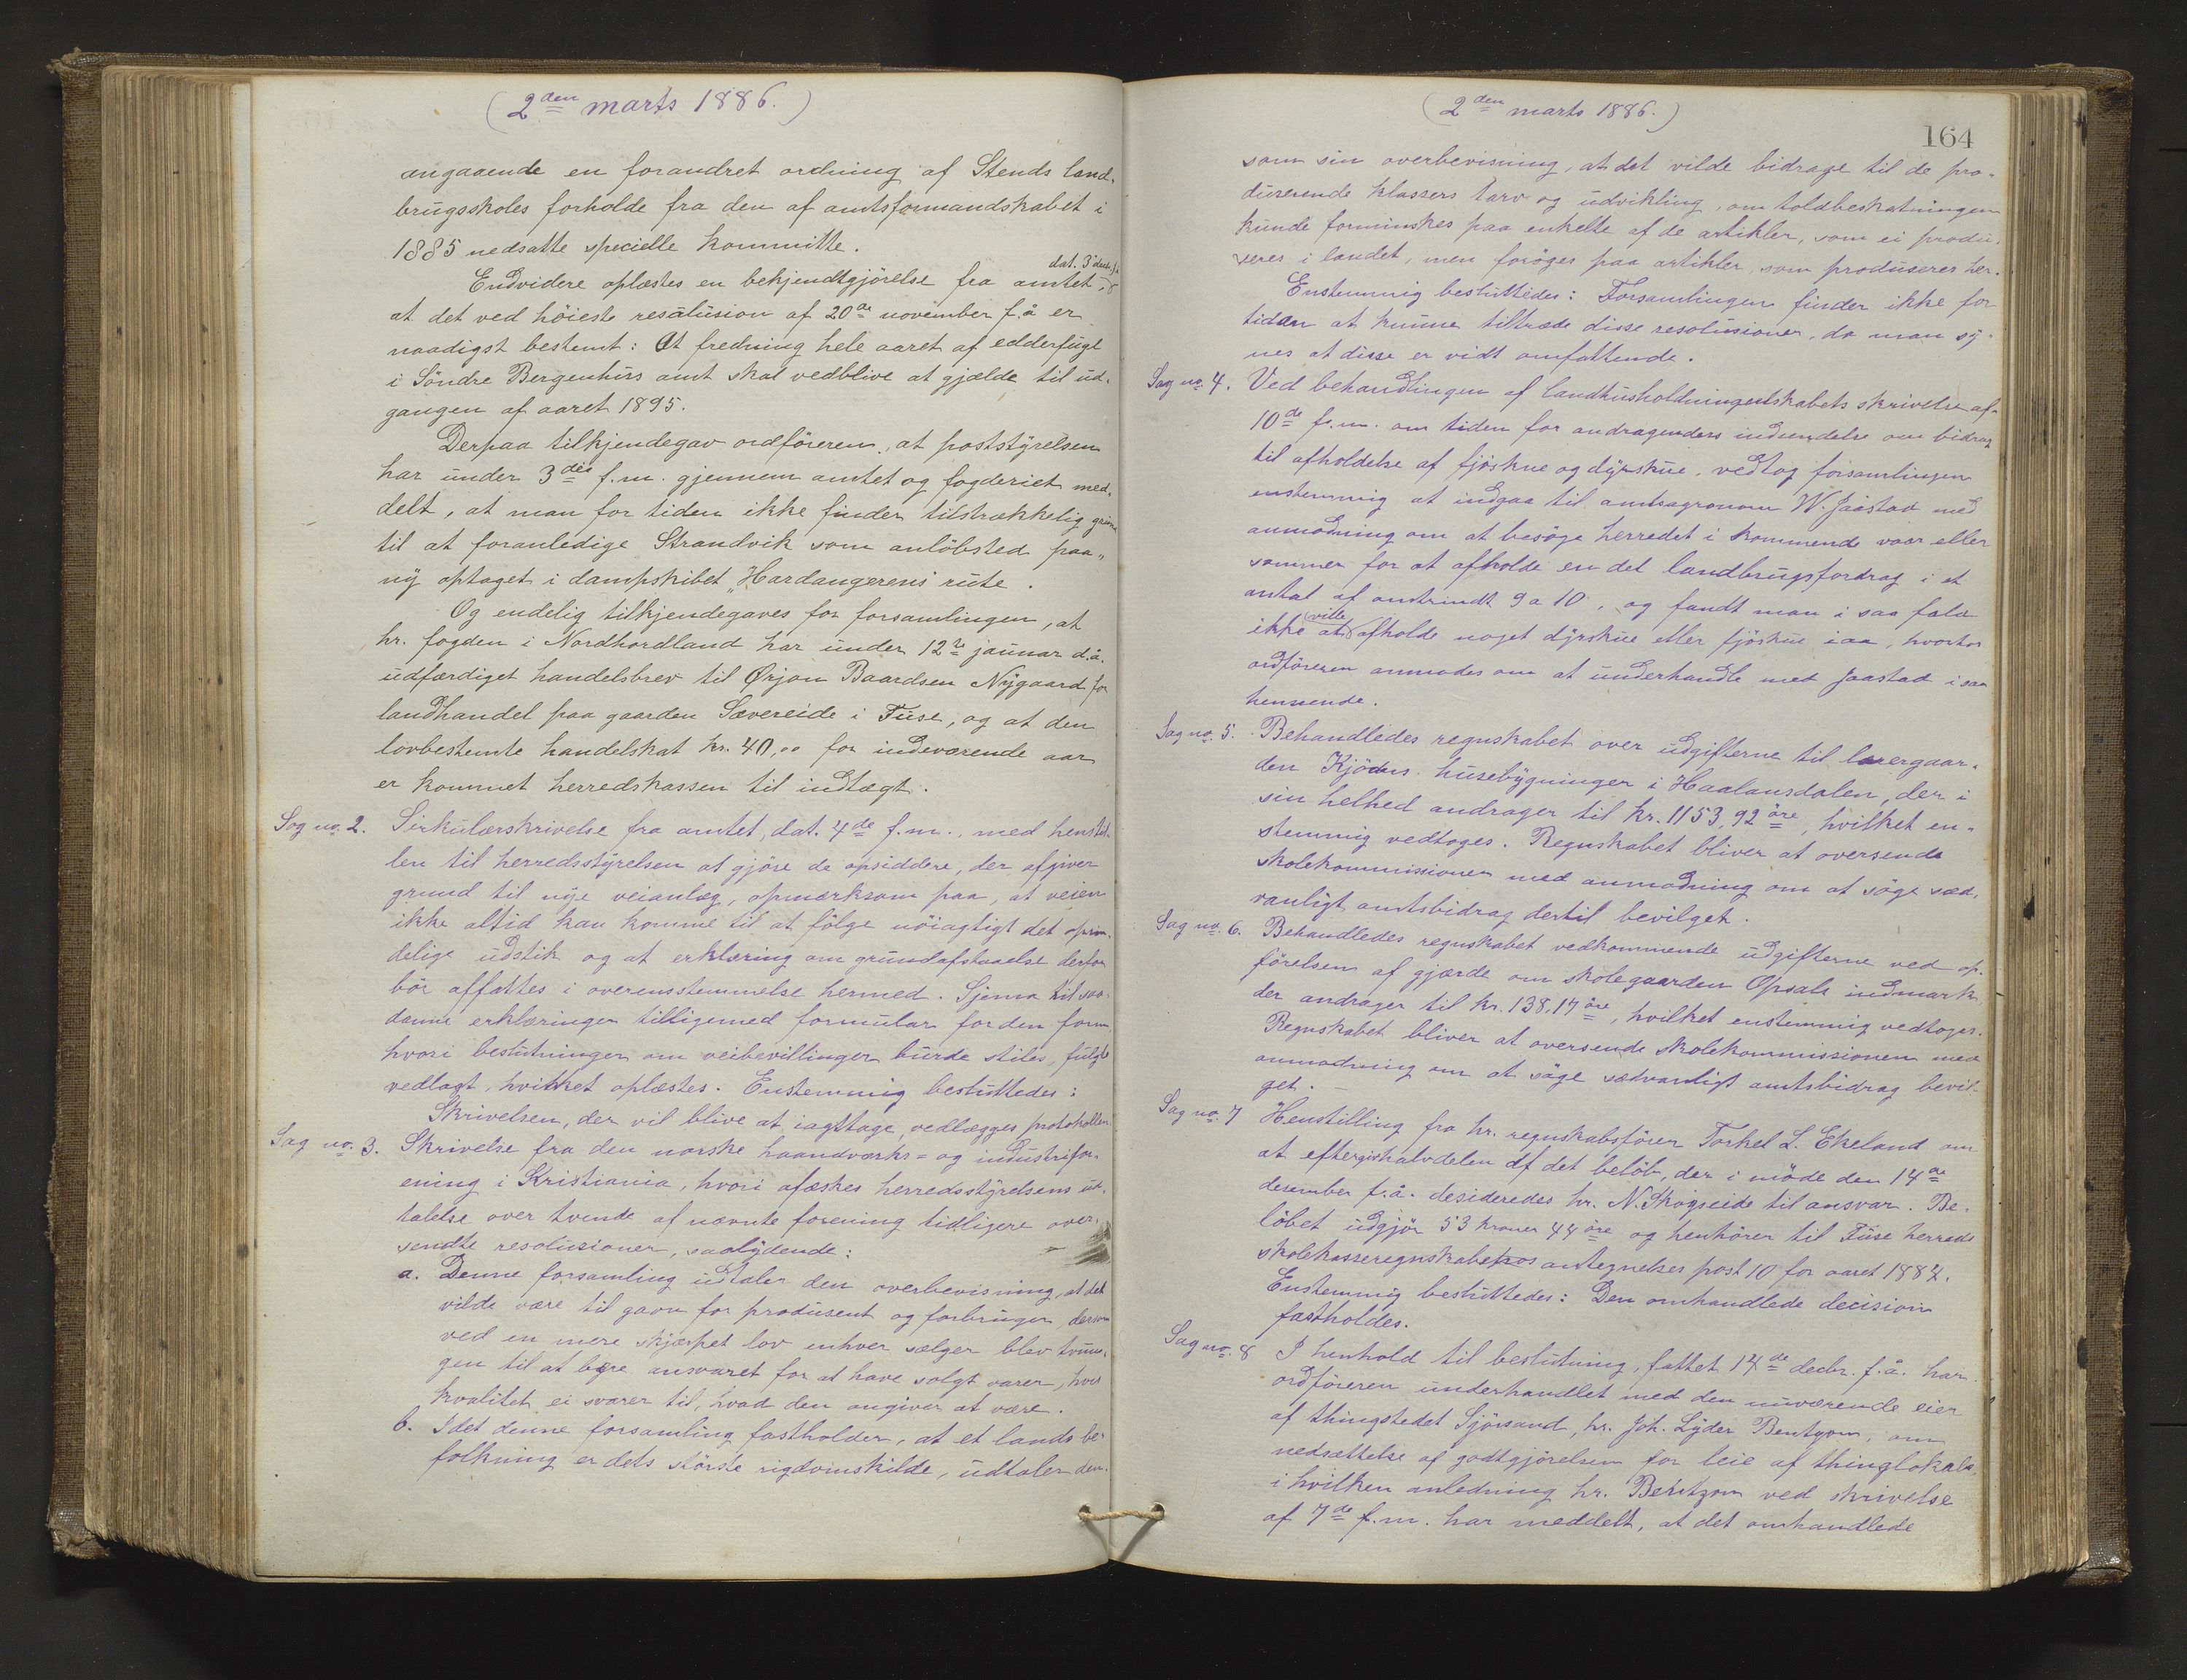 (2den marts 1886.)
angaaende en forandret ordning af Stends land-
brugsskoles forholde fra den af amtsformandskabet i
1885 nedsatte specielle kommitte.
Endvidere oplæstes en bekjendtgjörelse fra amtet, dat. 3 decbr.
at det ved höieste resolusion af 20de november f.å er
naadigst bestemt: At fredning hele aaret af edderfugl
i Söndre Bergenhus amt skal vedblive at gjælde til ud-
gangen af aaret 1895.
Derpaa tilkjendegav ordföreren, at poststyrelsen
har under 3die f.m. gjennem amtet og fogderiet med-
delt, at man for tiden ikke finder tilstrækkelig grund
til at foranledige Strandvik som anlöbsted paa-
ny optaget i dampskibet „Hardangeren's rute.
Og endelig tilkjendegaves for forsamlingen, at
hr. fogden i Nordhordland har under 12te januar d.å.
udfærdiget handelsbrev til Ørjan Baardsen Nygaard for
landhandel paa gaarden Sævereide i Fuse, og at den
lovbestemte handelskat kr. 40,00 for indeværende aar
er kommet herredskassen til indtægt.
Sag no. 2. Sirkulærskrivelse fra amtet, dat. 4de f.m., med henstil-
len til herredsstyrelsen at gjöre de opsiddere, der afgiver
grund til nye veianlæg, opmærksom paa, at veien
ikke altid kan komme til at fölge nöiagtigt det oprin-
delige udstik og at erklæring om grundafstaaelse derfor
bör affattes i overensstemmelse hermed. Sjema til saa-
danne erklæringer tilligemed formular for den form
hvori beslutninger om veibevillinger burde stiles, fulgte
vedlagt, hvilket oplæstes. Enstemmig besluttedes:
Skrivelsen, der vil blive at iagttage, vedlægges protokollen.
Sag no. 3. Skrivelse fra den norske haandværks- og industrifor-
ening i Kristiania, hvori afæskes herredsstyrelsens ud-
talelse over tvende af nævnte forening tidligere over-
sendte resolusioner, saalydende:
a. Denne forsamling udtaler den overbevisning, at det
vilde være til gavn for produsent og forbruger, dersom
ved en mere skjærpet lov enhver sælger blev tvun-
gen til at bære ansvaret for at have solgt varer, hvis
kvalitet ei svarer til, hvad den angiver at være.
b. Idet denne forsamling fastholder, at et lands be-
folkning er dets störste rigdomskilde, udtaler den
(2den marts 1886.)
164
som sin overbevisning, at det vilde bidrage til de pro-
duserende klassers tarv og udvikling, om toldbeskatningen
kunde forminskes paa enkelte af de artikler, som ei produ-
seres i landet, men foröges paa artikler, som produseres her.
Enstemmig besluttedes: Forsamlingen finder ikke for
tiden at kunne tiltræde disse resolusioner, da man sy-
nes at disse er vidt omfattende.
Sag no. 4. Ved behandlingen af landhusholdningselskabets skrivelse af
10de f.m. om tiden for andragenders indsendelse om bidrag
til afholdelse af fjöskue og dyrskue, vedtog forsamlingen
enstemmig at indgaa til amtsagronom W. Jaastad med
anmodning om at besöge herredet i kommende vaar eller
sommer for at afholde en del landbrugsfordrag i et
antal af omtrindt 9 a 10, og fandt man i saa fald
ikke at ville afholde noget dyrskue eller fjöskue iaa, hvorfor
ordföreren anmodes om at underhandle med Jaastad i saa
henseende.
Sag no. 5. Behandledes regnskabet over udgifterne til lærergaar-
den Kjödns husebygninger i Haalandsdalen, der i
sin helhed andrager til kr. 1153,92 öre, hvilket en-
stemmig vedtoges. Regnskabet bliver at oversende
skolekommissionen med anmodning om at söge sæd-
vanligt amtsbidrag dertil bevilget.
Sag no. 6. Behandledes regnskabet vedkommende udgifterne ved op-
förelsen af gjærde om skolegaarden Opsals indmark,
der andrager til kr. 138,17 öre, hvilket enstemmig vedtoges.
Regnskabet bliver at oversende skolekommissionen med
anmodning om at söge sædvanligt amtsbidrag bevil-
get.
Sag no. 7 Henstilling fra hr. regnskabsförer Torkel L. Ekeland om
at eftergi halvdelen af det belöb, der i möde den 14de
desember f.å. desideredes hr. N. Skogseide til ansvar. Be-
löbet udgjör 53 kroner 44 öre og henhörer til Fuse herreds
skolekasseregnskabs antegnelses post 10 for aaret 1884.
Enstemmig besluttedes: Den omhandlede decision
fastholdes.
Sag no. 8 I henhold til beslutning, fattet 14de decbr. f.å. har
ordföreren underhandlet med den nuværende eier
af thingstedet Sjörsand, hr. Joh. Lyder Bentzon, om
nedsættelse af godtgjörelsen for leie af thinglokale,
i hvilken anledning hr. Bentzon ved skrivelse
af 7de f.m. har meddelt, at det omhandlede